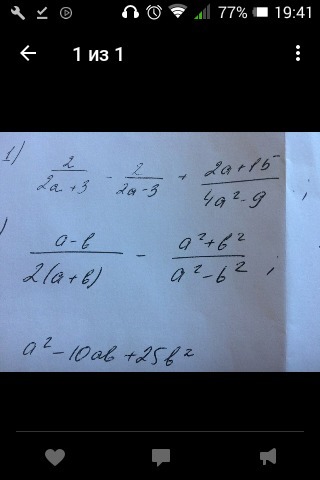 77% 19:41
1 из 1
1) 2/(2a+3) - 2/(2a-3) + (2a+15)/(4a²-9) ;
) (a-b)/(2(a+b)) - (a²+b²)/(a²-b²) ;
a²-10ab+25b²